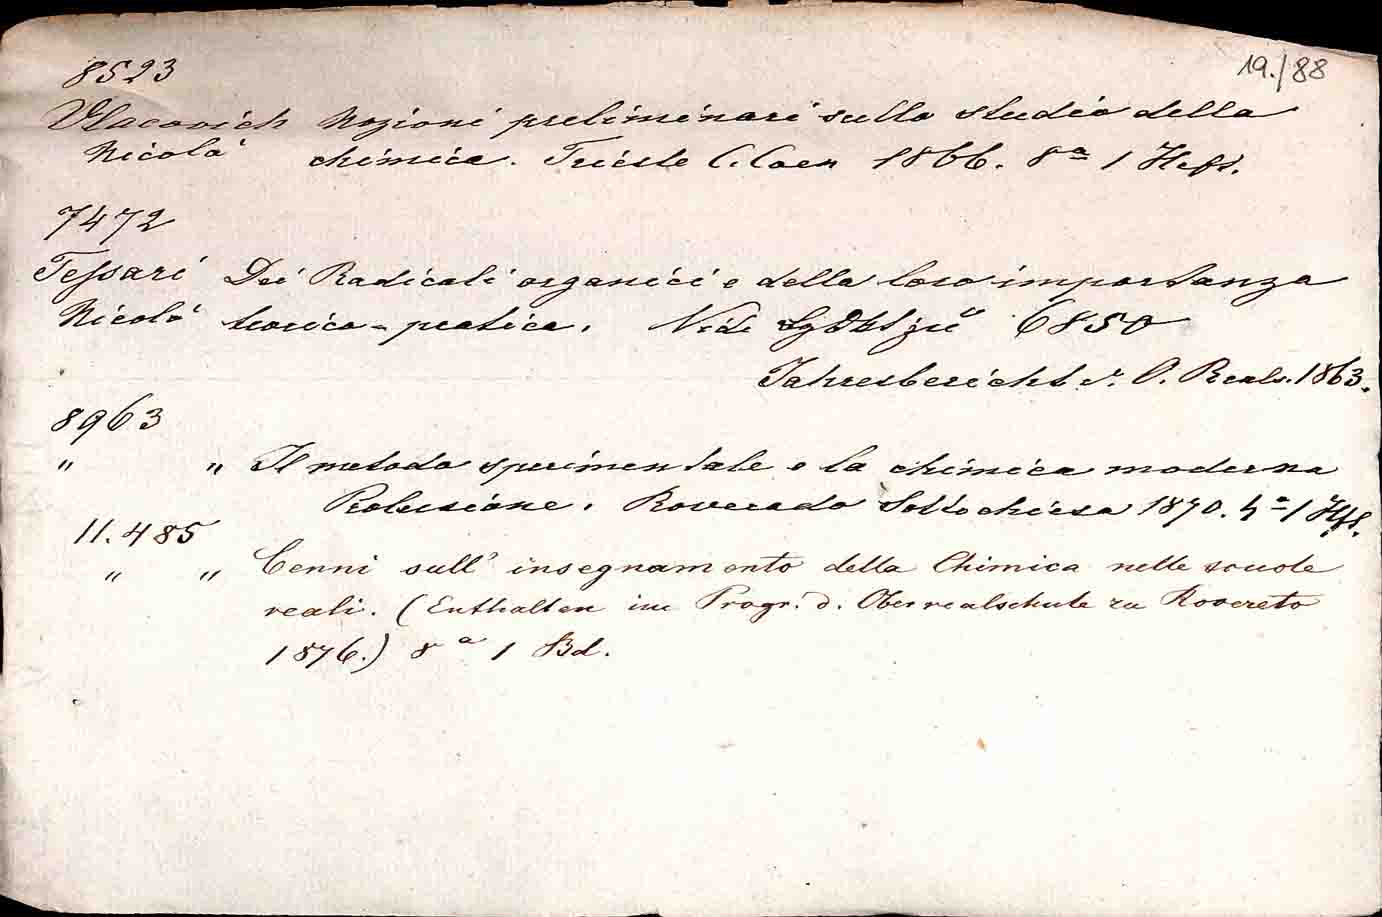 19./88
8523
Vlacovich Nozioni preliminari sullo studio della
Nicolò chimica. Trieste C. Coen 1866. 8° 1 Heft.
7472
Tessari Dei Radicali organici e della loro importanza
Nicolò teorico-pratica. Vide 6850
Jahresbericht d. O. Reals. 1863.
8963
" " Il metodo sperimentale e la chimica moderna
Prolusione. Roveredo Sottochiesa 1870. 4° 1 Hft.
11.485
" " Cenni sull' insegnamento della Chimica nelle scuole
reali. (Enthalten im Progr. d. Oberrealschule zu Rovereto
1876.) 8° 1 Bd.